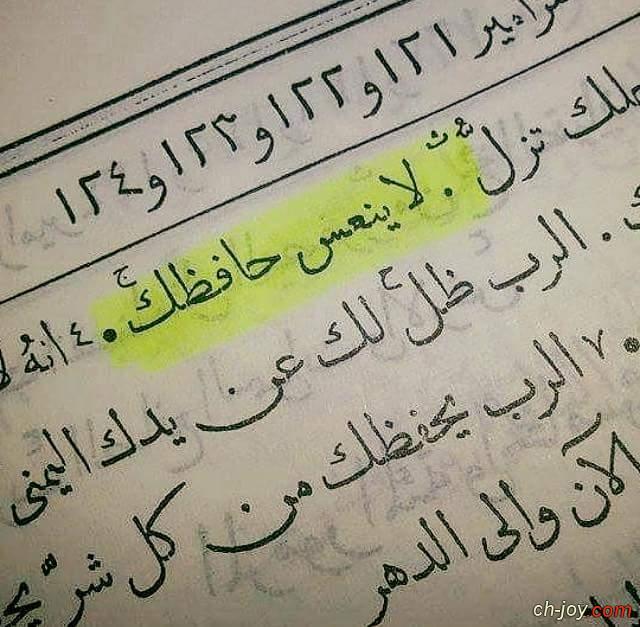 مزامير ١٢١ و ١٢٢ و ١٢٣ و ١٢٤
تزلّ . لا ينعس حافظك . ٤ انهُ لا
. الرب ظلّ لك عن يدك اليمنى
٧ الرب يحفظك من كل شرّ
الآن والى الدهر
ch-joy.com